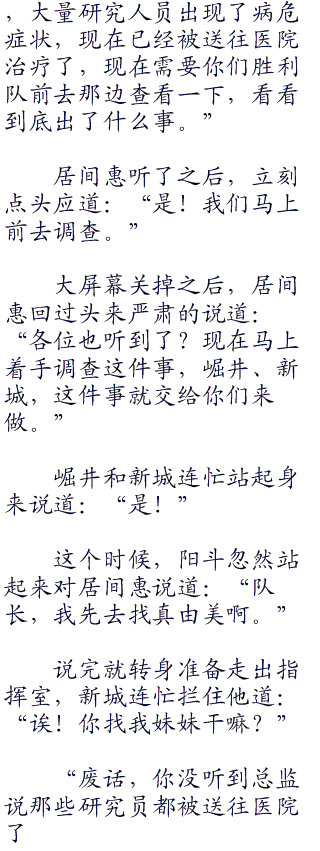 ，大量研究人员出现了病危
症状，现在已经被送往医院
治疗了，现在需要你们胜利
队前去那边查看一下，看看
到底出了什么事。”
居间惠听了之后，立刻
点头应道：“是！我们马上
前去调查。”
大屏幕关掉之后，居间
惠回过头来严肃的说道：
“各位也听到了？现在马上
着手调查这件事，崛井、新
城，这件事就交给你们来
做。”
崛井和新城连忙站起身
来说道：“是！”
这个时候，阳斗忽然站
起来对居间惠说道：“队
长，我先去找真由美啊。”
说完就转身准备走出指
挥室，新城连忙拦住他道：
“诶！你找我妹妹干嘛？”
“废话，你没听到总监
说那些研究员都被送往医院
了